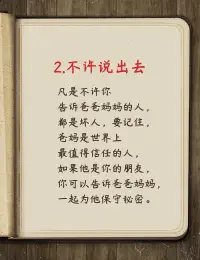 2.不许说出去
凡是不许你
告诉爸爸妈妈的人，
都是坏人，要记住，
爸妈是世界上
最值得信任的人，
如果他是你的朋友，
你可以告诉爸爸妈妈，
一起为他保守秘密。